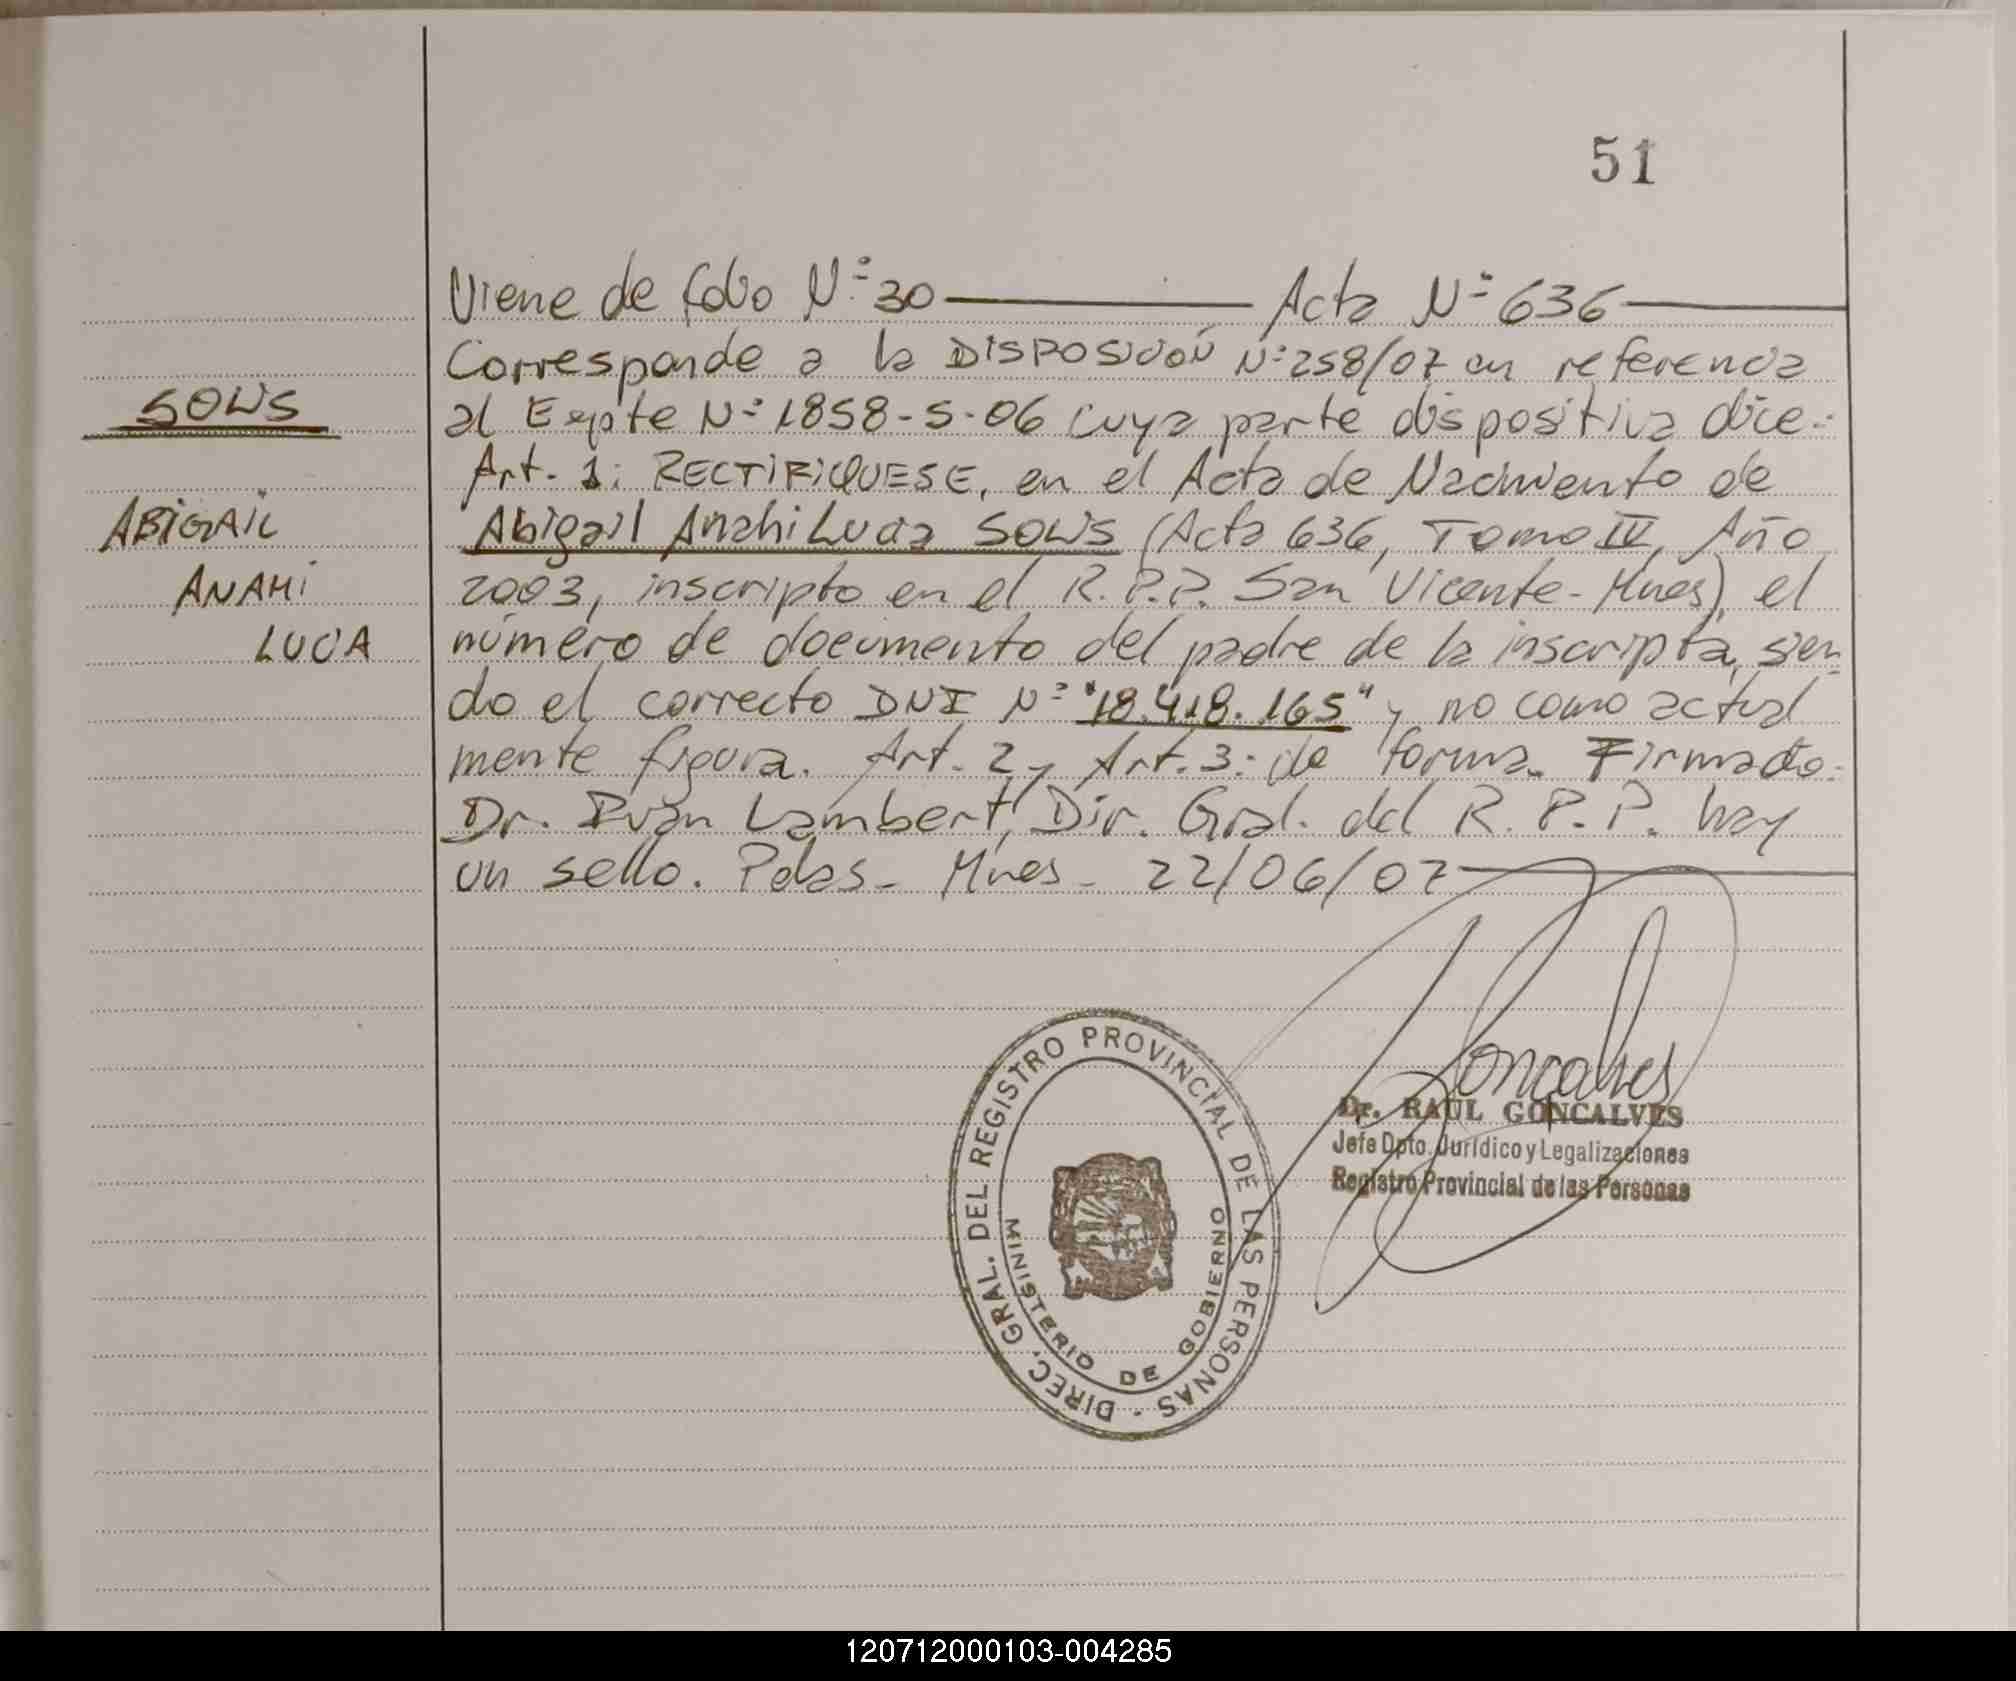 51
Viene de folio N° 30 — Acta N° 636 —
Corresponde a la DISPOSICIÓN N° 258/07 en referencia
SOLIS
al Expte N° 1858-S-06 cuya parte dispositiva dice:
Art. 1: RECTIFIQUESE, en el Acta de Nacimiento de
ABIGAIL
Abigail Anahi Lucia SOLIS (Acta 636, Tomo IV, Año
ANAHI
2003, inscripto en el R.P.P. San Vicente - Mnes), el
LUCIA
número de documento del padre de la inscripta, sien
do el correcto DNI N° "18.418.165" y no como actual
mente figura. Art. 2 y Art. 3: de forma. Firmado:
Dr. Iván Lambert, Dir. Gral. del R.P.P. hay
un sello. Pdas - Mnes - 22/06/07 —
Goncalves
Dr. RAUL GONCALVES
Jefe Dpto. Jurídico y Legalizaciones
Registro Provincial de las Personas
DIREC. GRAL. DEL REGISTRO PROVINCIAL DE LAS PERSONAS -
MINISTERIO DE GOBIERNO
120712000103-004285